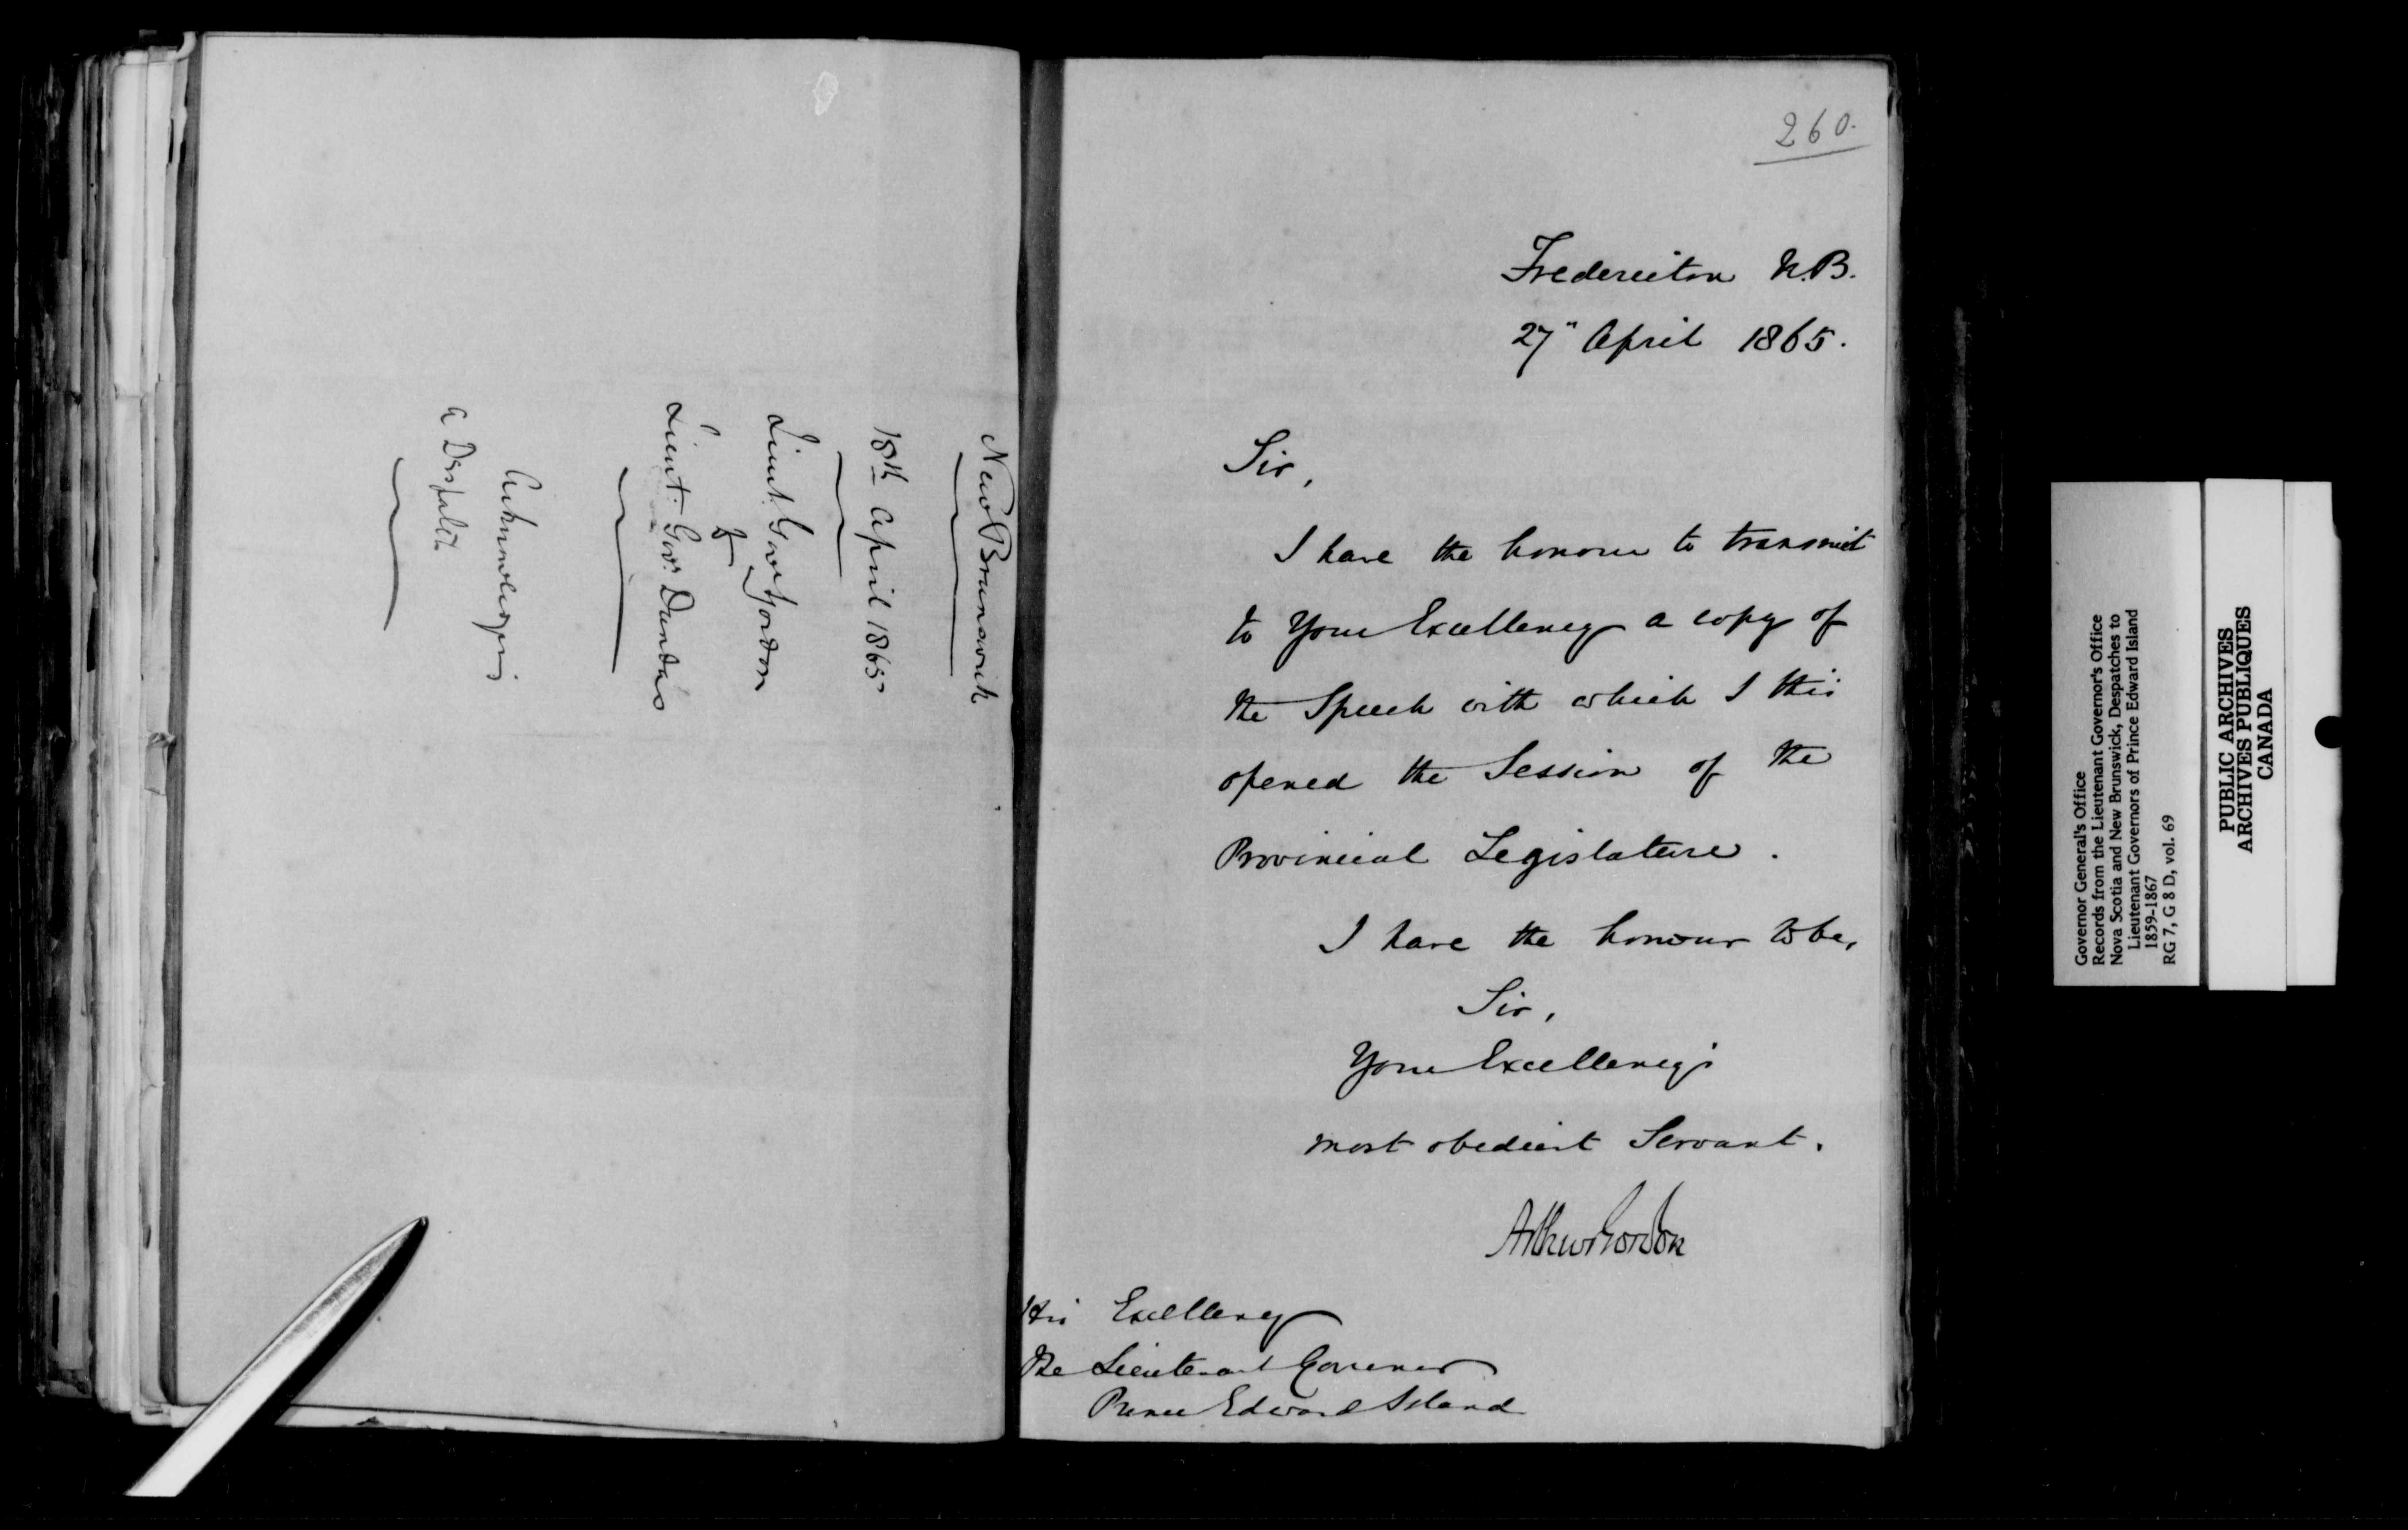 New Brunswick
18th April 1865
Lieut. Govr. Gordon
to
Lieut. Gov. Dundas
Acknowledging
a Despatch
260.
Fredericton N.B.
27" April 1865.
Sir,
I have the honour to transmit
to Your Excellency a copy of
the Speech with which I this
opened the Session of the
Provincial Legislature.
I have the honour to be,
Sir,
Your Excellency's
most obedient Servant.
Arthur Gordon
His Excellency
The Lieutenant Governor
Prince Edward Island
Governor General's Office
Records from the Lieutenant Governor's Office
Nova Scotia and New Brunswick, Despatches to
Lieutenant Governors of Prince Edward Island
1859-1867
RG 7, G 8 D, vol. 69
PUBLIC ARCHIVES
ARCHIVES PUBLIQUES
CANADA